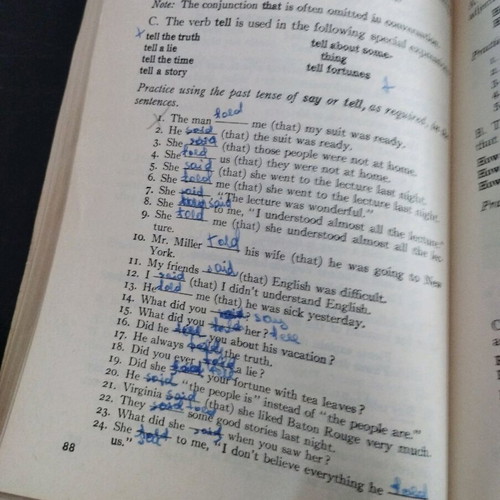 Note: The conjunction that is often omitted in conversation.
C. The verb tell is used in the following special expressions
tell the truth
tell a lie
tell the time
tell a story
tell about some-
thing
tell fortunes
Practice using the past tense of say or tell, as required, in
sentences.
1. The man told me (that) my suit was ready.
2. He said (that) the suit was ready.
3. She said (that) those people were not at home.
4. She told us (that) they were not at home.
5. She said (that) she went to the lecture last night.
6. She told me (that) she went to the lecture last night.
7. She said "The lecture was wonderful."
8. She said to me, "I understood almost all the lecture."
9. She told me (that) she understood almost all the lec-
ture.
10. Mr. Miller told his wife (that) he was going to New
York.
11. My friends said (that) English was difficult.
12. I said (that) I didn't understand English.
13. He told me (that) he was sick yesterday.
14. What did you say
15. What did you told her? tell
16. Did he you about his vacation?
17. He always the truth.
18. Did you ever a lie?
19. Did she your fortune with tea leaves?
20. He said "the people is" instead of "the people are."
21. Virginia said (that) she liked Baton Rouge very much.
22. They told some good stories last night.
23. What did she said when you saw her?
24. She told to me, "I don't believe everything he
us."
88